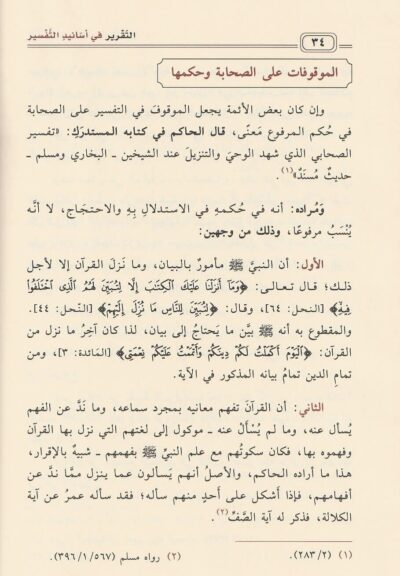 ٣٤
التَّقْرير في أسَانيدِ التَّفْسير
الموقوفات على الصحابة وحكمها
وإن كان بعض الأئمة يجعل الموقوفَ في التفسير على الصحابة
في حُكم المرفوع مَعنًى، قال الحاكم في كتابه المستدرَكِ: «تفسير
الصحابي الذي شهد الوحيَ والتنزيلَ عند الشيخين ـ البخاري ومسلم ـ
حديثٌ مُسنَدٌ»(١).
ومُراده: أنه في حُكمهِ في الاستدلالِ بِهِ والاحتجاج، لا أنَّه
يُنْسَبُ مرفوعًا، وذلك من وجهين:
الأول: أن النبيَّ ﷺ مأمورٌ بالبيان، وما نَزلَ القرآن إلا لأجلِ
ذلك؛ قال تعالى: ﴿وَمَآ أَنزَلْنَا عَلَيْكَ ٱلْكِتَٰبَ إِلَّا لِتُبَيِّنَ لَهُمُ ٱلَّذِى ٱخْتَلَفُوا۟
فِيهِ﴾ [النحل: ٦٤]، وقال: ﴿لِتُبَيِّنَ لِلنَّاسِ مَا نُزِّلَ إِلَيْهِمْ﴾ [النَّحل: ٤٤].
والمقطوع به أنه ﷺ بيَّن ما يَحتاجُ إلى بيان، لذا كان آخِرُ ما نزل من
القرآن: ﴿ٱلْيَوْمَ أَكْمَلْتُ لَكُمْ دِينَكُمْ وَأَتْمَمْتُ عَلَيْكُمْ نِعْمَتِى﴾ [المائدة: ٣]، ومن
تمامِ الدين تمامُ بيانه المذكور في الآية.
الثاني: أن القرآنَ تفهم معانيه بمجرد سماعه، وما نَدَّ عن الفهم
يُسأل عنه، وما لم يُسْألْ عنه ـ موكول إلى لغتهم التي نزل بها القرآن
وفهموه بها، فكان سكوتُهم مع علم النبيِّ ﷺ بفهمهم ـ شبيهٌ بالإقرار،
هذا ما أراده الحاكم، والأصلُ أنهم يَسألون عما ينزل ممَّا ندَّ عن
أفهامهم، فإذا أَشكل على أَحدٍ منهم سأله؛ فقد سأله عمرُ عن آية
الكلالة، فذكر له آية الصَّفِّ(٢).
(١) (٢/ ٢٨٣).
(٢) رواه مسلم (٥٦٧/ ١/ ٣٩٦).